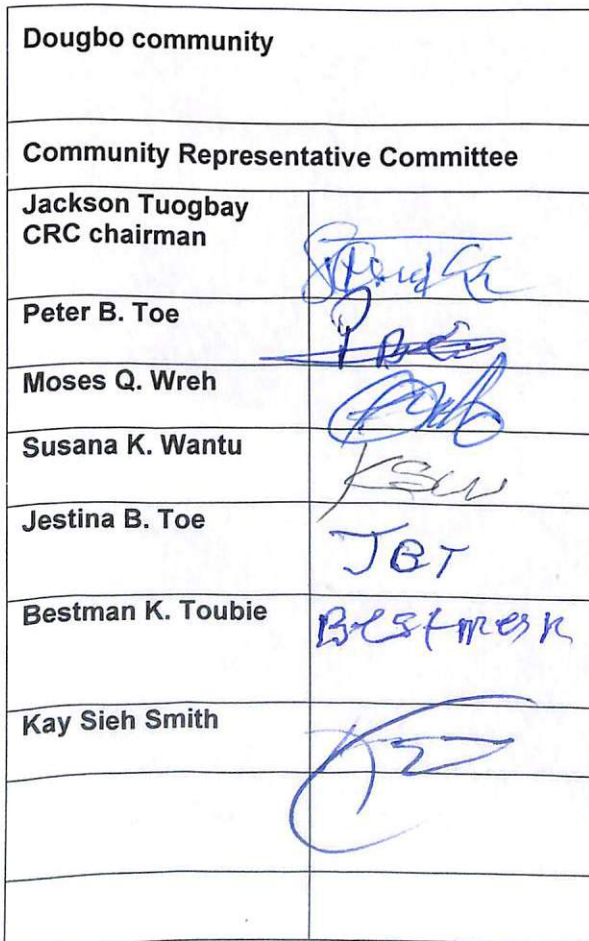 Dougbo community
Community Representative Committee
Jackson Tuogbay
CRC chairman
Peter B. Toe
Moses Q. Wreh
Susana K. Wantu
KSW
Jestina B. Toe
JBT
Bestman K. Toubie
Kay Sieh Smith